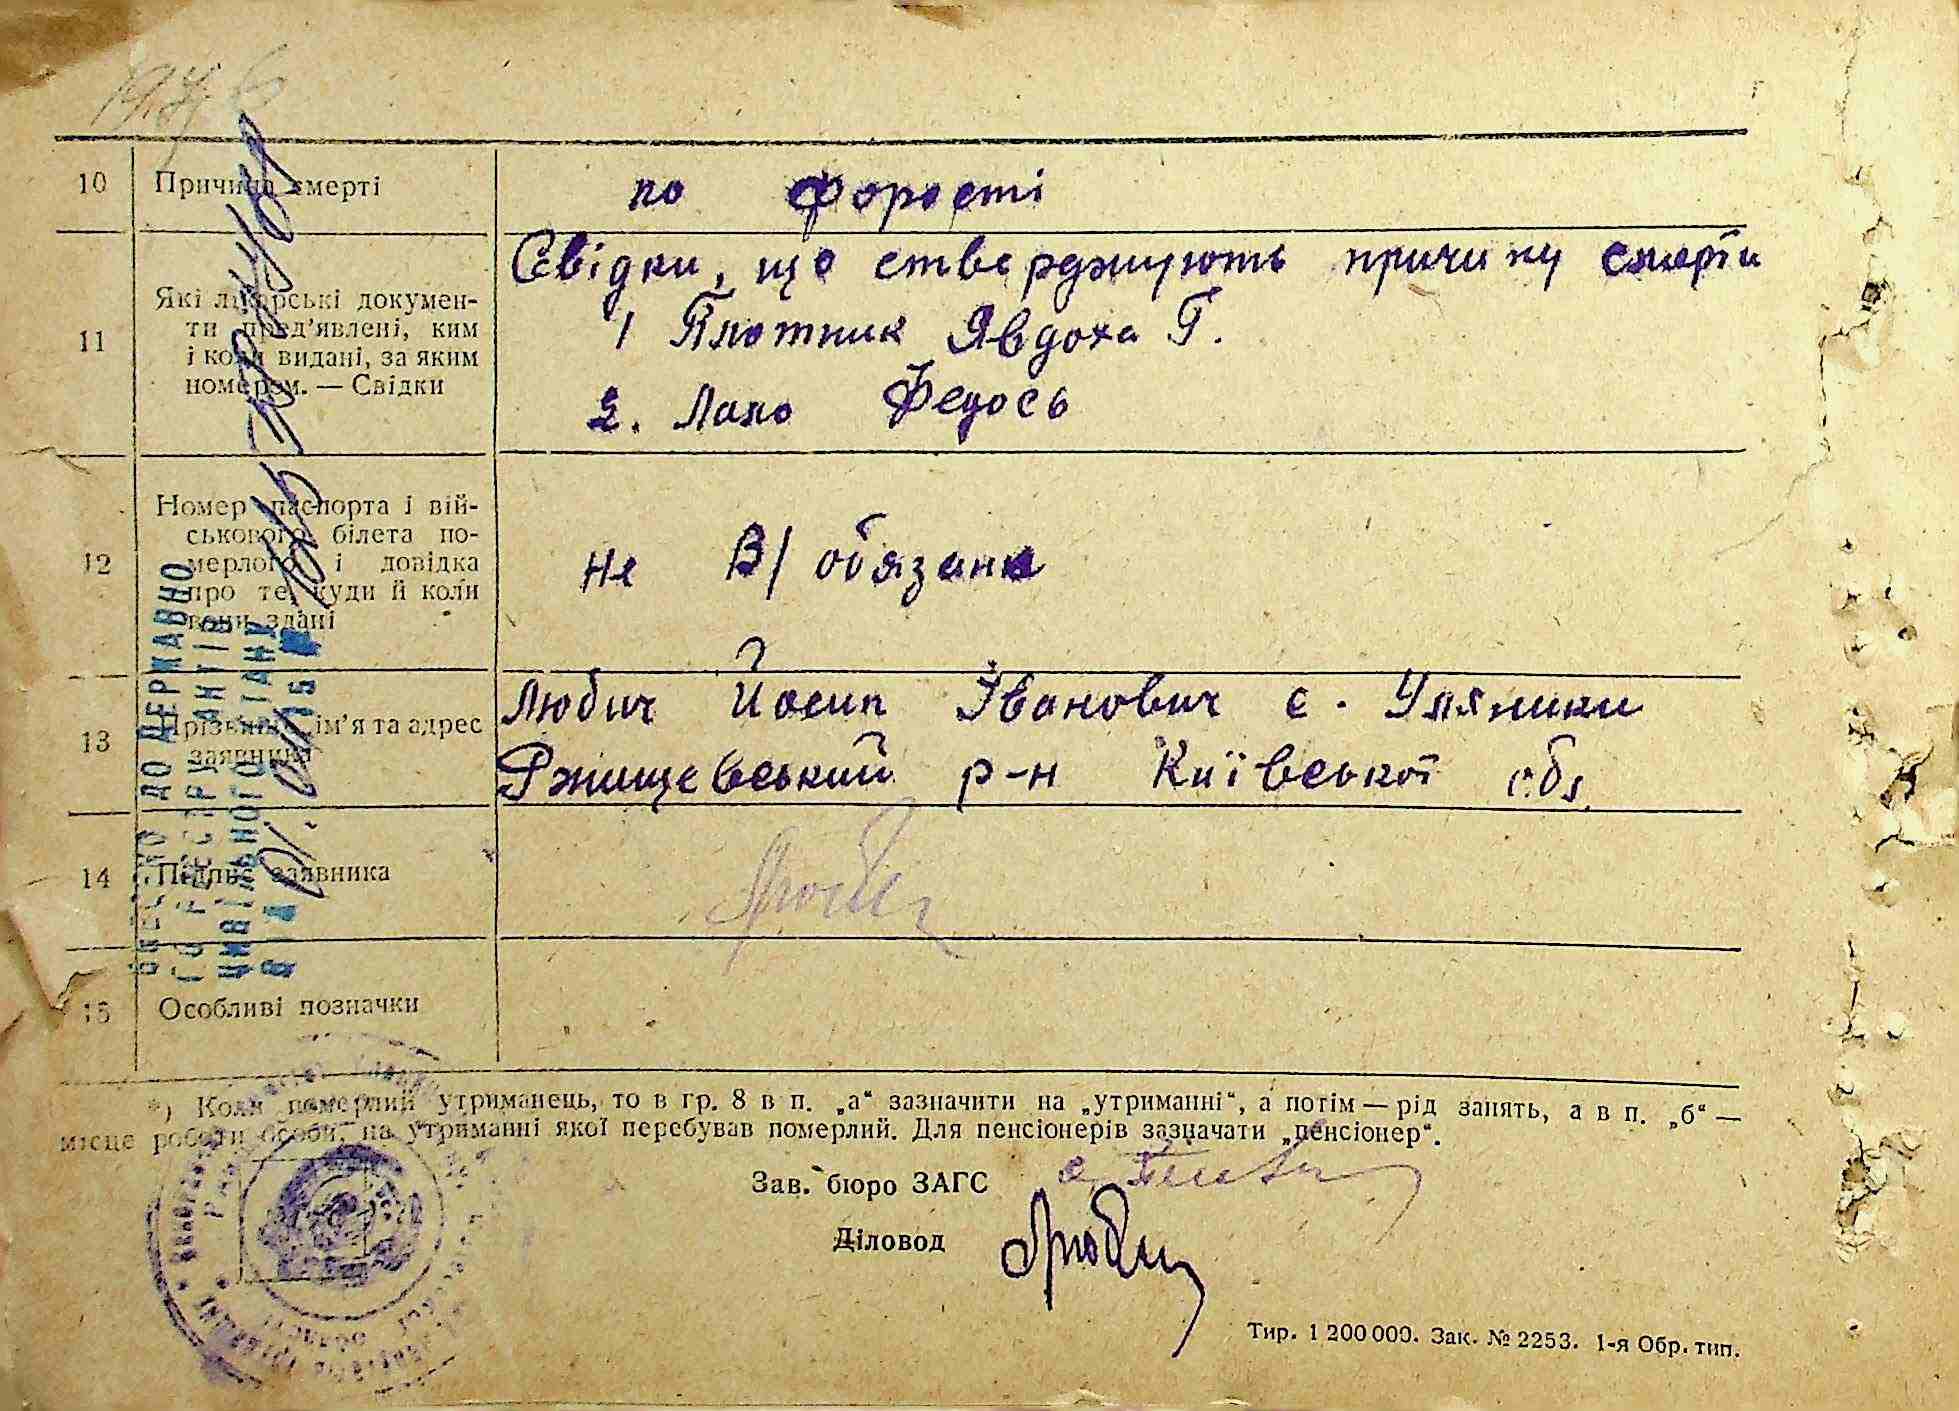 1946
10 Причина смерті по форості
Свідки, що стверджують причину смерти
11 Які лікарські докумен-
ти пред’явлені, ким
і коли видані, за яким
номером. — Свідки
1 Плотник Явдоха Г.
2. Лапо Федось
12 Номер паспорта і вій-
ськового білета по-
мерлого і довідка
про те, куди й коли
вони здані
не В/ обязана
13 Прізвище, ім’я та адрес
заявника
Любич Йосип Іванович с. Уляники
Ржищевський р-н Київської обл
14 Підпис заявника
15 Особливі позначки
ВНЕСЕНО ДО ДЕРЖАВНО
ГО РЕЄСТРУ АКТІВ
ЦИВІЛЬНОГО СТАНУ
*) Коли померлий утриманець, то в гр. 8 в п. „а“ зазначити на „утриманні“, а потім — рід занять, а в п. „б“ —
місце роботи особи, на утриманні якої перебував померлий. Для пенсіонерів зазначати „пенсіонер“.
Зав. бюро ЗАГС
Діловод
Тир. 1 200 000. Зак. № 2253. 1-я Обр. тип.